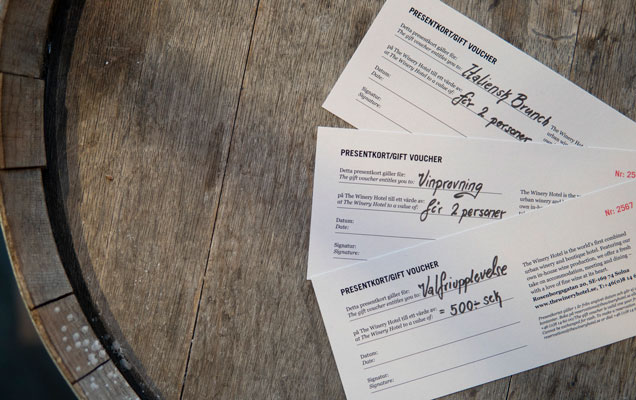 PRESENTKORT/GIFT VOUCHER
Detta presentkort gäller för:
The gift voucher entitles you to:
Italiensk Brunch
på The Winery Hotel till ett värde av:
at The Winery Hotel to a value of:
för 2 personer
Datum:
Date:
Signatur:
Signature:
The Winery
urban wine
PRESENTKORT/GIFT VOUCHER
Nr: 25
Detta presentkort gäller för:
The gift voucher entitles you to:
Vinprovning
på The Winery Hotel till ett värde av:
at The Winery Hotel to a value of:
för 2 personer
Datum:
Date:
Signatur:
Signature:
The Winery Hotel is the
urban winery and
own in-house
PRESENTKORT/GIFT VOUCHER
Nr: 2567
Detta presentkort gäller för:
The gift voucher entitles you to:
Valfriupplevelse
på The Winery Hotel till ett värde av:
at The Winery Hotel to a value of:
= 500:- sek
Datum:
Date:
Signatur:
Signature:
The Winery Hotel is the world's first combined
urban winery and boutique hotel. Featuring our
own in-house wine production, we offer a fresh
take on accommodation, meeting and dining
with a love of fine wine at its heart.
Rosenborgsgatan 20, SE-169 74 Solna
www.thewineryhotel.se, T:+468 14 6